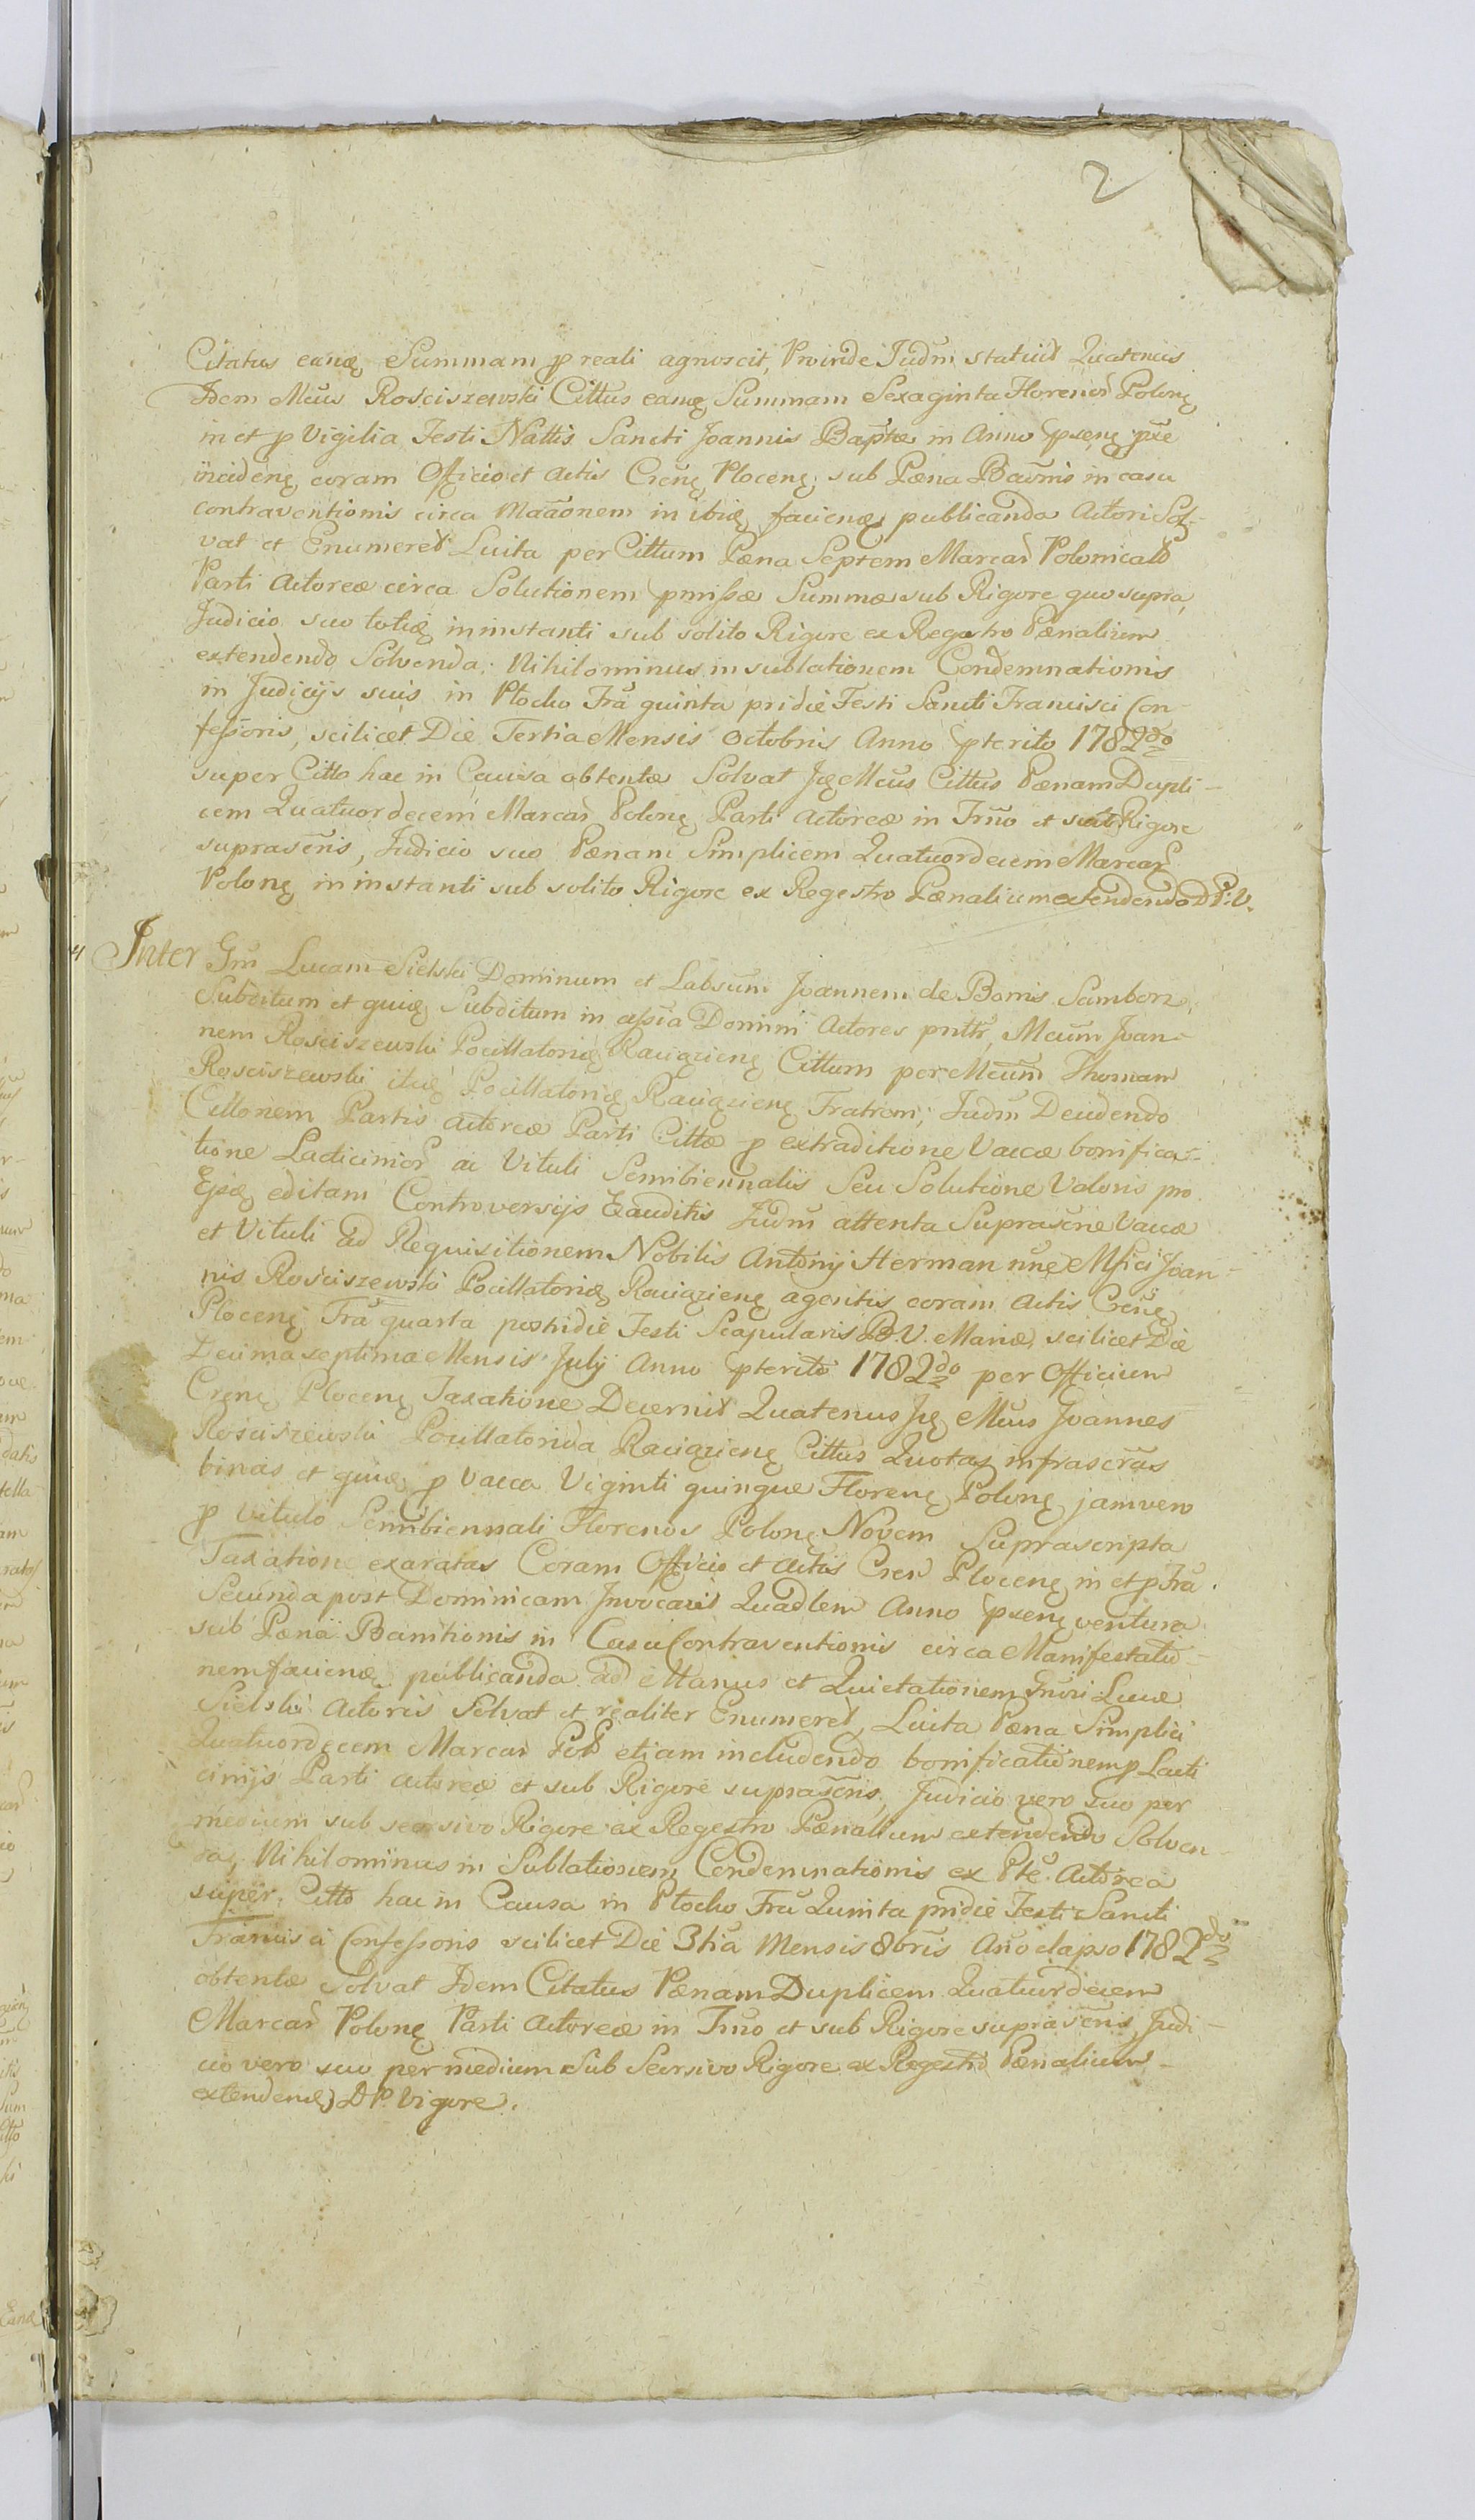 2
Citatus eanę Summam p reali agnoscit, Proinde Judm statuit Quatenus
Idem Mcus Rosciszewski Cittus eamę Summam Sexaginta Florenos Polonę
in et p Vigilia Festi Nattis Sancti Joannis Baptæ in Anno pxenę
incidenę coram Officio et Actis Crenę Plocenę sub Pæna Bannis in casu
contraventionis circa Maãonem in ibię facienę publicanda Actori Sol-
vat et Enumeret Luita per Cittum Pæna Septem Marcar Polonicat
Parti Actoreæ circa Solutionem pmissæ Summæ sub Rigore quo supra,
Judicio suo totię in instanti sub solito Rigore ex Regestro Pænalium
extendendo Solvenda: Nihilominus in sublationem Condemnationis
in Judicijs suis in Plocko Fra quinta pridie Festi Sancti Francisci Con-
fessoris, scilicet Die Tertia Mensis Octobris Anno pterito 1782do
super Citto hac in Causa obtentæ Solvat Ię Mcus Cittus Pænam Dupli-
cem Quatuordecem Marcar Polonę Parti Actoreæ in Trno et sub Rigore
suprascris, Judicio suo Pænam Simplicem Quatuordecem Marcar
Polonę in instanti sub solito Rigore ex Regestro Pænalium extendendo D P: V.
4 Inter Gm Lucam Sielski Dominum et Labsum Joannem de Bonis Samborz
Subditum et quię Subditum in assia Domini Actores pntes, Mcum Joan-
nem Rosciszewski Pocillatorię Raciązienę Cittum per Mcum Thomam
Rosciszewski itię Pocillatorię Raciązienę Fratrem; Judm Decidendo
Cittonem Partis Actoreæ Parti Cittæ p extraditione Vaccæ bonifica-
tione Lacticinior ac Vituli Semibiennalis Seu Solutione Valoris pro
Ejsę editam Controversijs Exauditis Judm attenta Suprascriæ Vaccæ
et Vituli ad Requisitionem Nobilis Antonij Herman nnę Mfici Joan-
nis Rosciszewski Pocillatorię Raciązienę agentis coram Actis Crenę
Plocenę Fra quarta postridie Festi Scapularis B.V. Mariæ, scilicet Die
Decima septima Mensis July Anno pterito 1782do per Officium
Crenę Plocenę Taxatione Decernit Quatenus Ię Mcus Joannes
Rosciszewski Pocillatorida Raciązienę Cittus Quotas infrascras
binas et quię p Vacca Viginti quinque Florenę Polonę jam vero
p Vitulo Semibiennali Florenos Polonę Novem Suprascripta
Taxatione exaratas Coram Officio et Actis Cren Plocenę in et p Fra
Secunda post Dominicam Invocavit Quadlem Anno pxenę ventura
sub Pæna Bannitionis in Casu Contraventionis circa Manifestatio-
nem facienę publicanda ad Manus et Quietationem Grosi Lucæ
Sielski Actoris Solvat et realiter Enumeret, Luita Pæna Simplici
Quatuordecem Marcar Pol etiam includendo bonificationem p Lacti
cinijs Parti Actoreæ et sub Rigore suprascris, Judicio vero suo per
medium sub seorsivo Rigore ex Regestro Pænalium extendendo Solven-
da, Nihilominus in Sublationem Condemnationis ex Pte Actorea
super Citto hac in Causa in Plocko Fra Quinta pridie Festi Sancti
Francisci Confessoris scilicet Die 3tia Mensis 8bris Ano elapso 1782do
obtentæ solvat Idem Citatus Pænam Duplicem Quatuordecem
Marcar Polonę Parti Actoreæ in Trno et sub Rigore suprascris Judi-
cio vero suo per medium Sub Seorsivo Rigore ex Regestro Pænalium
extendenę D P. Vigore.